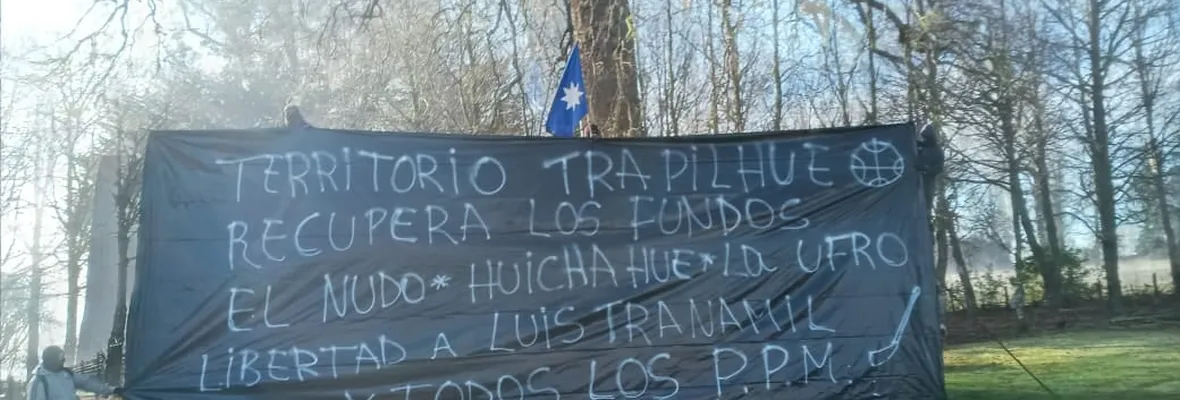 TERRITORIO TRAPILHUE
RECUPERA LOS FUNDOS
EL NUDO* HUICHAHUE* La UFRO
LIBERTAD A LUIS TRANAMIL
Y TODOS LOS P.P.M.